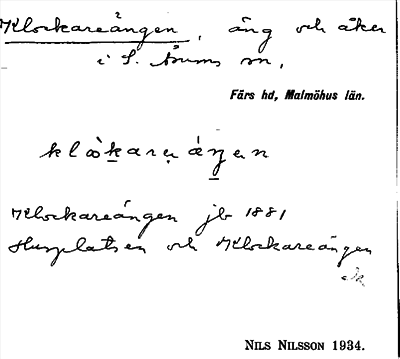 Klockareängen, äng och åker
i S. Åsums sn,
Färs hd, Malmöhus län.
Klockareängen jb 1881
Husplatsen och Klockareängen
NILS NILSSON 1934.